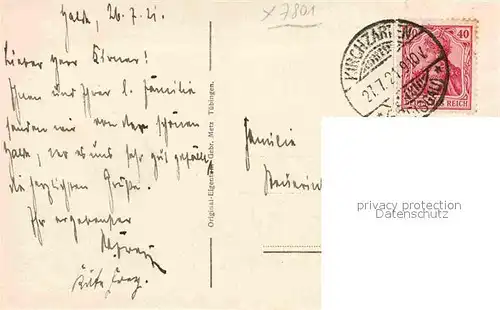 Halde, 26.7.21.
x 7801
Lieber Herr Körner!
Ihnen und Ihrer l. Familie
senden wir von der schönen
Halde, wo es uns sehr gut gefällt
die herzlichsten Grüße.
Ihr ergebenster
Original-Eigentum Gebr. Metz Tübingen.
KIRCHZARTEN
27.7.21.9-10V.
40
REICH
Familie
privacy protection
Datenschutz